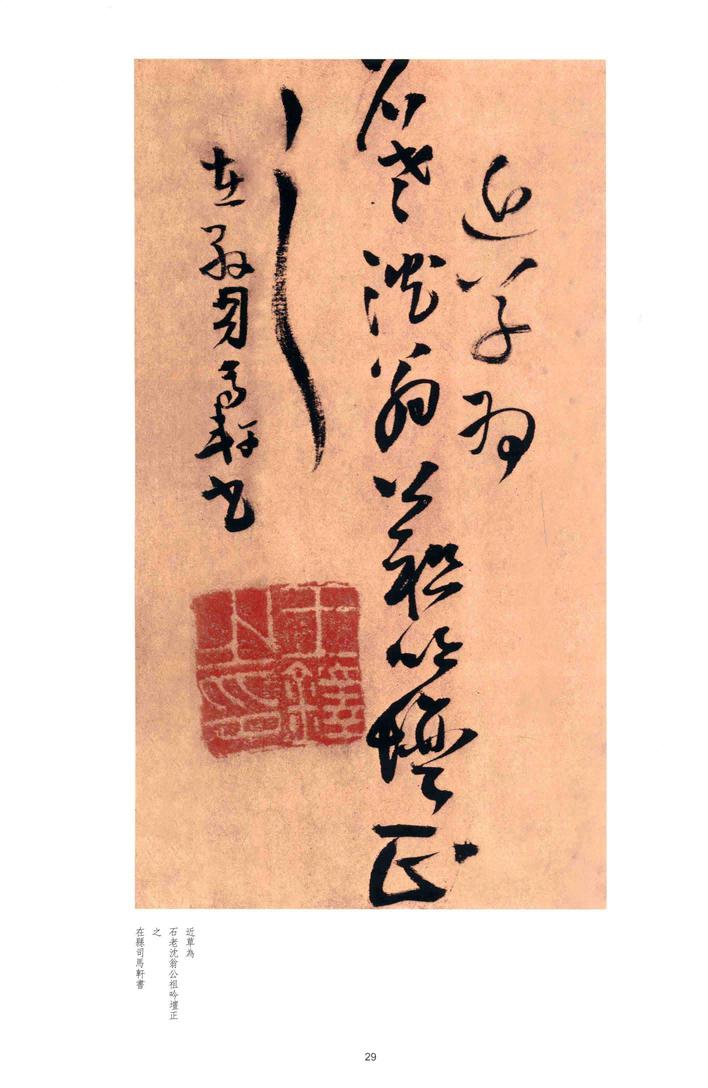 近草為
石老沈翁公祖吟壇正
之
在縣司馬軒書
王鐸
之印
近草為
石老沈翁公祖吟壇正
之
在縣司馬軒書
29